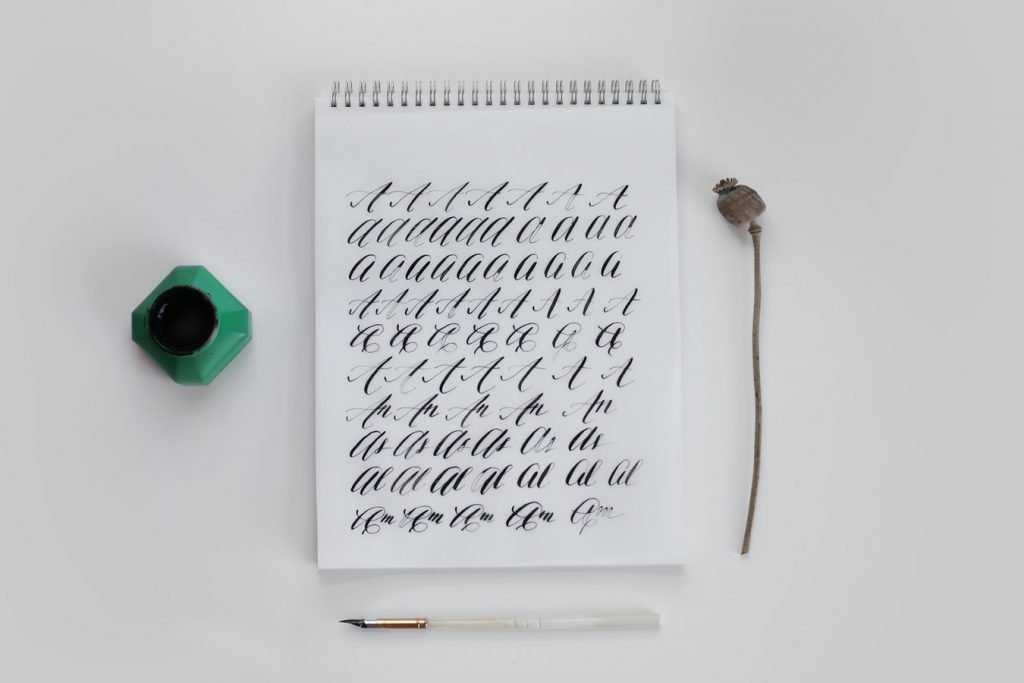 A A A A A A A
a a a a a a a a a a a
a a a a a a a a a a a
A A A A A A A A A A
A A A A A A A
A A A A A A A
An An An An An
As As As As As As
Al Al Al Al Al Al Al
Am Am Am Am Am